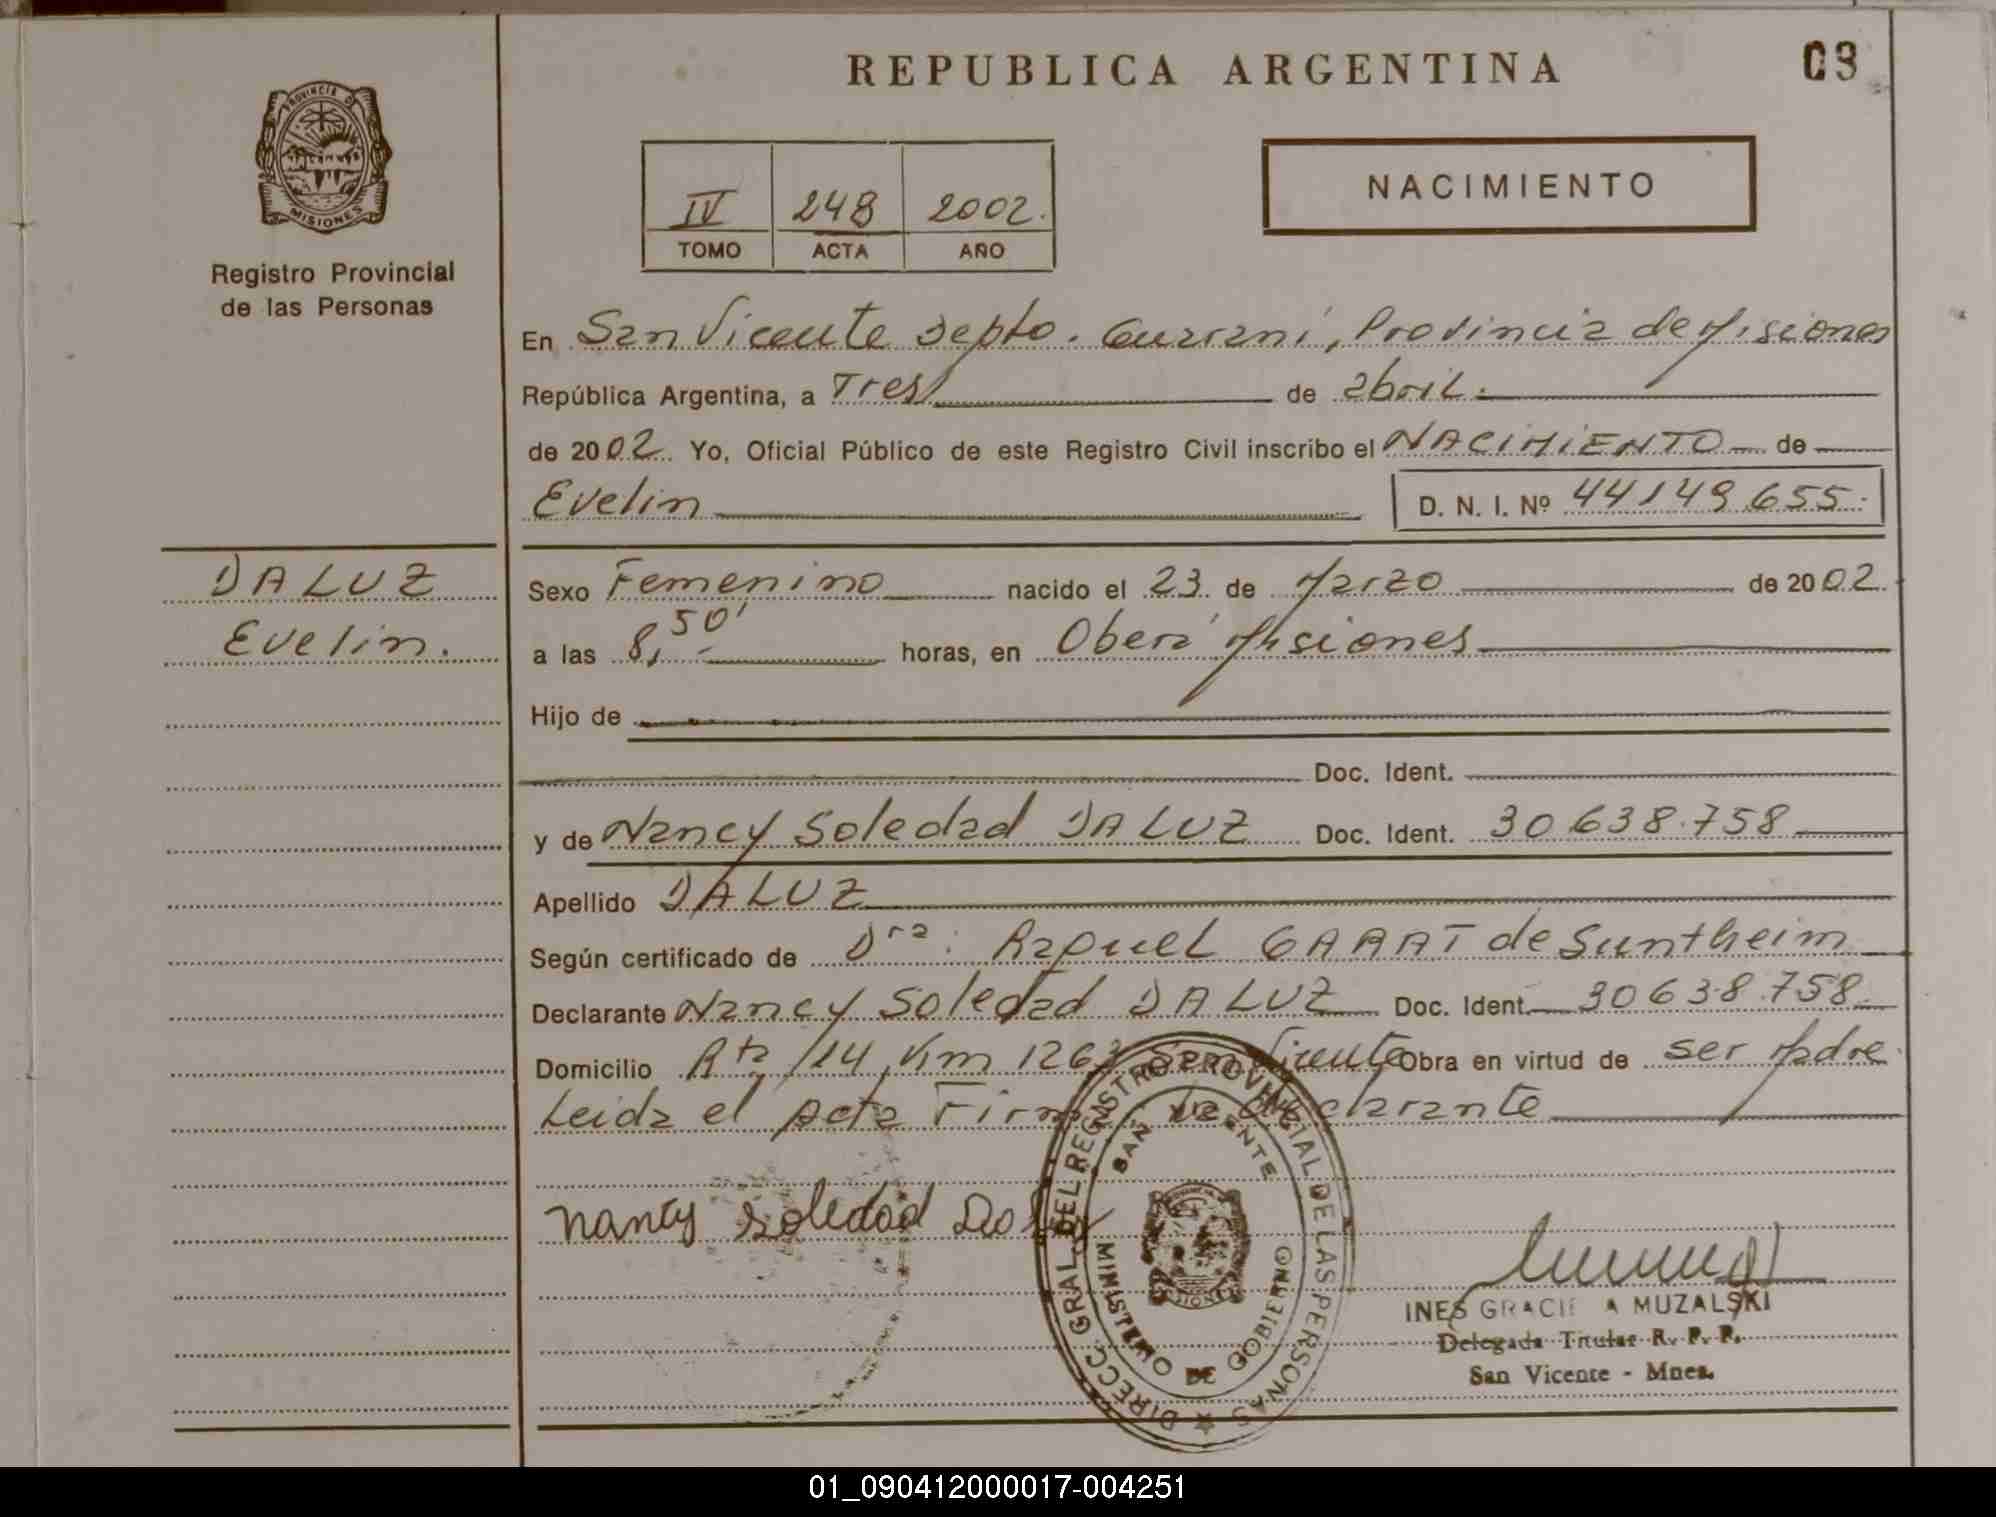 REPUBLICA ARGENTINA
03
PROVINCIA DE
MISIONES
Registro Provincial
de las Personas
IV 248 2002.
TOMO ACTA AÑO
NACIMIENTO
En San Vicente Depto. Guarani, Provincia de Misiones
República Argentina, a Tres de abril.
de 2002. Yo, Oficial Público de este Registro Civil inscribo el NACIMIENTO de
Evelin D. N. I. Nº 44149655.
DA LUZ
Evelin.
Sexo Femenino nacido el 23 de Marzo de 2002.
a las 8,50' horas, en Oberá Misiones
Hijo de
Doc. Ident.
y de Nancy Soledad DA LUZ Doc. Ident. 30.638.758
Apellido DA LUZ
Según certificado de Dra: Raquel de Suntheim
Declarante Nancy Soledad DA LUZ Doc. Ident. 30638.758
Domicilio Rta 14 Km 1263 San Vicente Obra en virtud de ser Madre
Leida el Acta Firma la declarante
Nancy Soledad
DIRECC. GRAL. DEL REGISTRO PROVINCIAL DE LAS PERSONAS
SAN VICENTE
MINISTERIO DE GOBIERNO
INES GRACIELA MUZALSKI
Delegada Titular R. P. P.
San Vicente - Mnes.
01_090412000017-004251